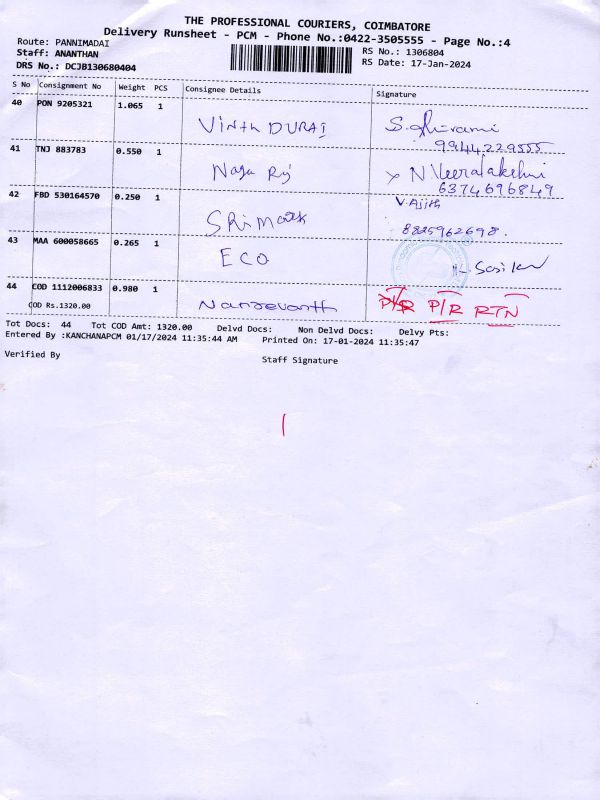 THE PROFESSIONAL COURIERS, COIMBATORE
Delivery Runsheet - PCM - Phone No.:0422-3505555 - Page No.:4
Route: PANNIMADAI
RS No.: 1306804
Staff: ANANTHAN
RS Date: 17-Jan-2024
DRS No.: DCJB130680404
S No Consignment No Weight PCS Consignee Details Signature
40 PON 9205321 1.065 1 Vinth DURAI
9944229555
41 TNJ 883783 0.550 1 Naga Raj
6374696849
42 FBD 530164570 0.250 1 SRIMATK V.Ajith
8825962698.
43 MAA 600058665 0.265 1 ECO
44 COD 1112006833 0.980 1
COD Rs.1320.00 P/R P/R RTN
Tot Docs: 44 Tot COD Amt: 1320.00 Delvd Docs: Non Delvd Docs: Delvy Pts:
Entered By :KANCHANAPCM 01/17/2024 11:35:44 AM Printed On: 17-01-2024 11:35:47
Verified By Staff Signature